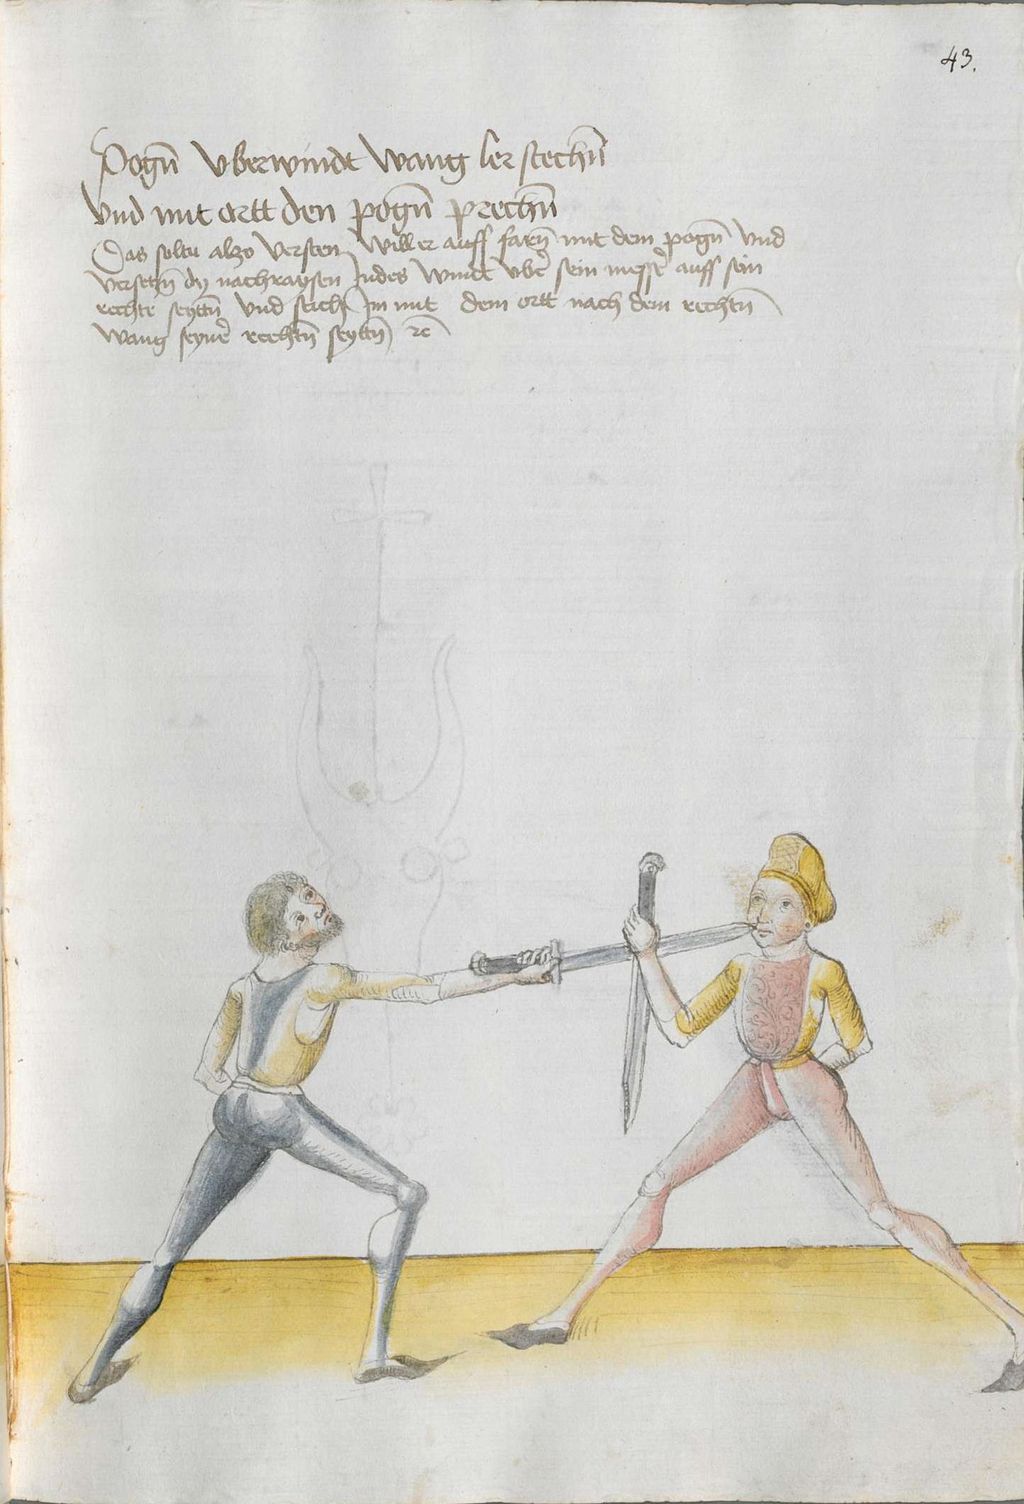 43.
Pogñ vberwindt wang ler stechñ
Vnd mit ortt den pogñ prechñ
Das soltu alzo versten Will er auff farñ mit dem pogñ vnd
versetzñ dy nachraysen Indes windt vber sein messer auff sein
rechte seyttñ vnd stich Im mit dem ortt nach dem rechtñ
wang seyner rechtñ seyttñ rc̄